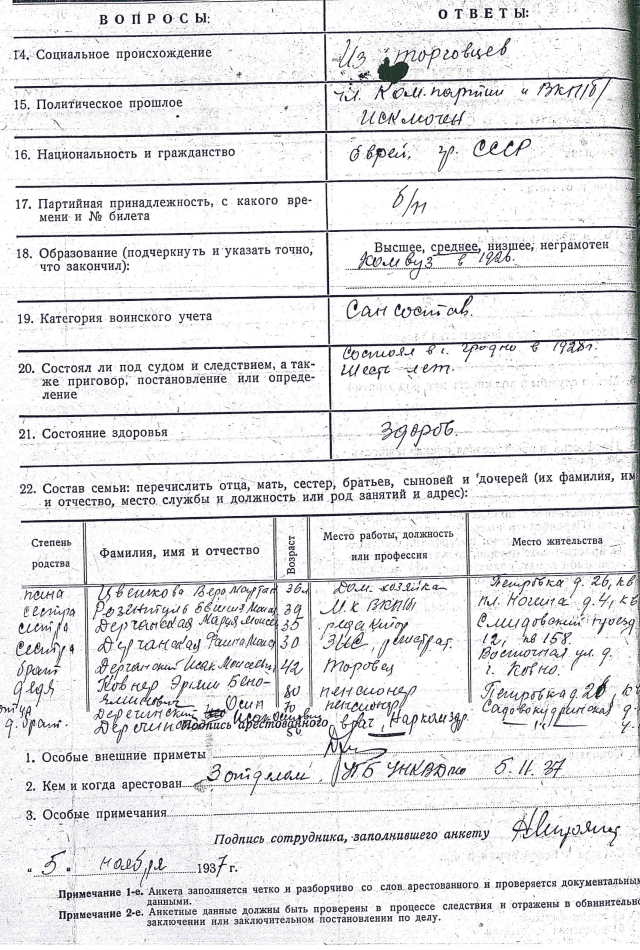 ВОПРОСЫ: ОТВЕТЫ:
14. Социальное происхождение Из торговцев
15. Политическое прошлое чл. Компартии и ВКП/б/
исключен
16. Национальность и гражданство еврей, гр. СССР
17. Партийная принадлежность, с какого вре-
мени и № билета б/п
18. Образование (подчеркнуть и указать точно,
что закончил): Высшее, среднее, низшее, неграмотен
Комвуз в 1926.
19. Категория воинского учета Сан состав.
20. Состоял ли под судом и следствием, а так-
же приговор, постановление или опреде-
ление состоял в г. Гродно в 1928г.
Шесть лет.
21. Состояние здоровья Здоров.
22. Состав семьи: перечислить отца, мать, сестер, братьев, сыновей и дочерей (их фамилия, им
и отчество, место службы и должность или род занятий и адрес):
Степень
родства Фамилия, имя и отчество Возраст Место работы, должность
или профессия Место жительства
жена Цветкова Вера 36 Дом. хозяйка Петровка д. 26, кв
сестра Моис 39 МК ВКПб пл. Ногина д. 4, кв
сестра Дерчанская Мария Моисе 35 редактор проезд
12, кв 158.
сестра Дерчанская Моис 30 регистрат. Восточная ул. д.
брат Исак Моисеевич 42 Торговец г. Ковно.
дядя Ковнер Бень-
яминович 80 пенсионер Петровка д. 26 кв
Осип 70 пенсионер Садовокудринская д
д. брат. врач, Наркомздр.
Подпись арестованного
1. Особые внешние приметы
2. Кем и когда арестован 3 отделом УГБ УНКВД 5.11.37
3. Особые примечания
Подпись сотрудника, заполнившего анкету
„ 5 “ ноября 1937 г.
Примечание 1-е. Анкета заполняется четко и разборчиво со слов арестованного и проверяется документальным
данными.
Примечание 2-е. Анкетные данные должны быть проверены в процессе следствия и отражены в обвинительно
заключении или заключительном постановлении по делу.